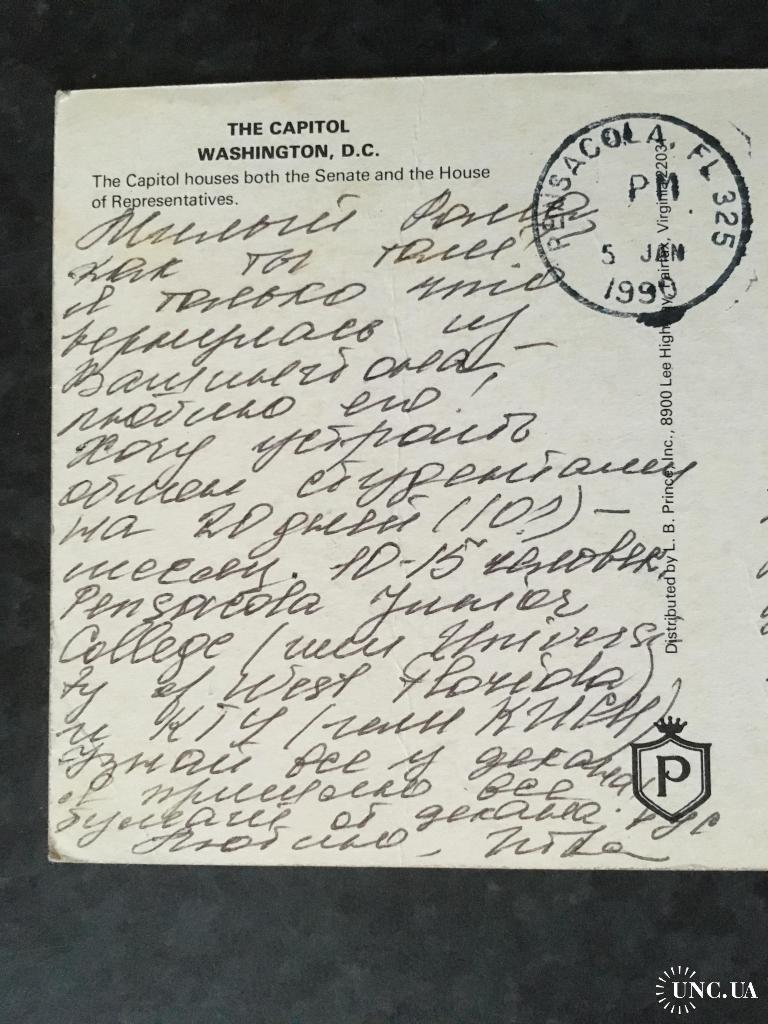 THE CAPITOL
WASHINGTON, D.C.
The Capitol houses both the Senate and the House
of Representatives.
PENSACOLA, FL 325
PM
5 JAN
1990
Милый
как ты там,
я только что
вернулась из
Вашингтона,
люблю его!
Хочу устроить
обмен студентами
на 20 дней (10?) –
месяц. 10-15 человек.
Pensacola Junior
College (или Universi
ty of West Florida)
и КТУ (или КИСИ)
Узнай все у декана,
я пришлю все
бумаги от декана.
Люблю,
Distributed by L. B. Prince, Inc., 8900 Lee Highway, Fairfax, Virginia 22031
P
UNC.UA